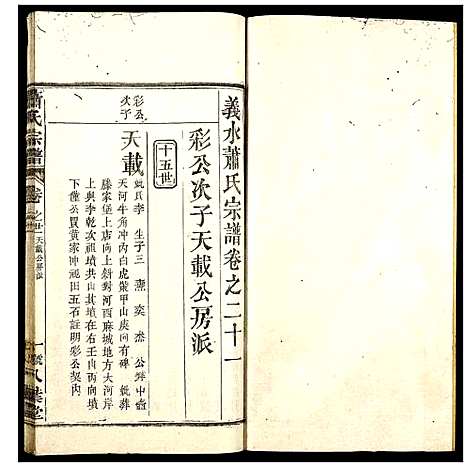 義水蕭氏宗譜卷之二十一
彩公次子天載公房派
十五世
彩公
次子
天載
妣氏李 生子三 燾 奕 杰 公葬中壺
天河牛角冲內白虎架甲山庚向有碑 妣葬
滕家堡上店向上新對河西麻城地方大河岸
上與李乾次祖墳共山其墳在右壬山丙向墳
下僮公買黃家冲祀田五石註明彩公契內
蕭氏宗譜
卷之廿一
天載公房派
八葉堂